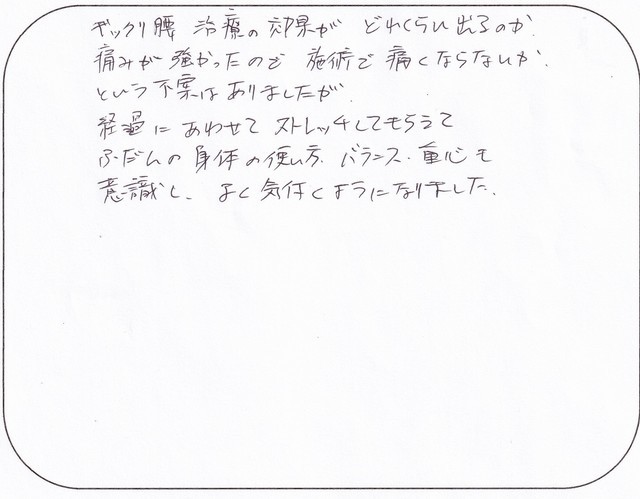 ギックリ腰 治療の効果が どれくらい出るのか、
痛みが強かったので 施術で痛くならないか、
という不安はありましたが、
経過にあわせて ストレッチしてもらえて
ふだんの身体の使い方、バランス、重心も
意識し、よく気付くようになりました。